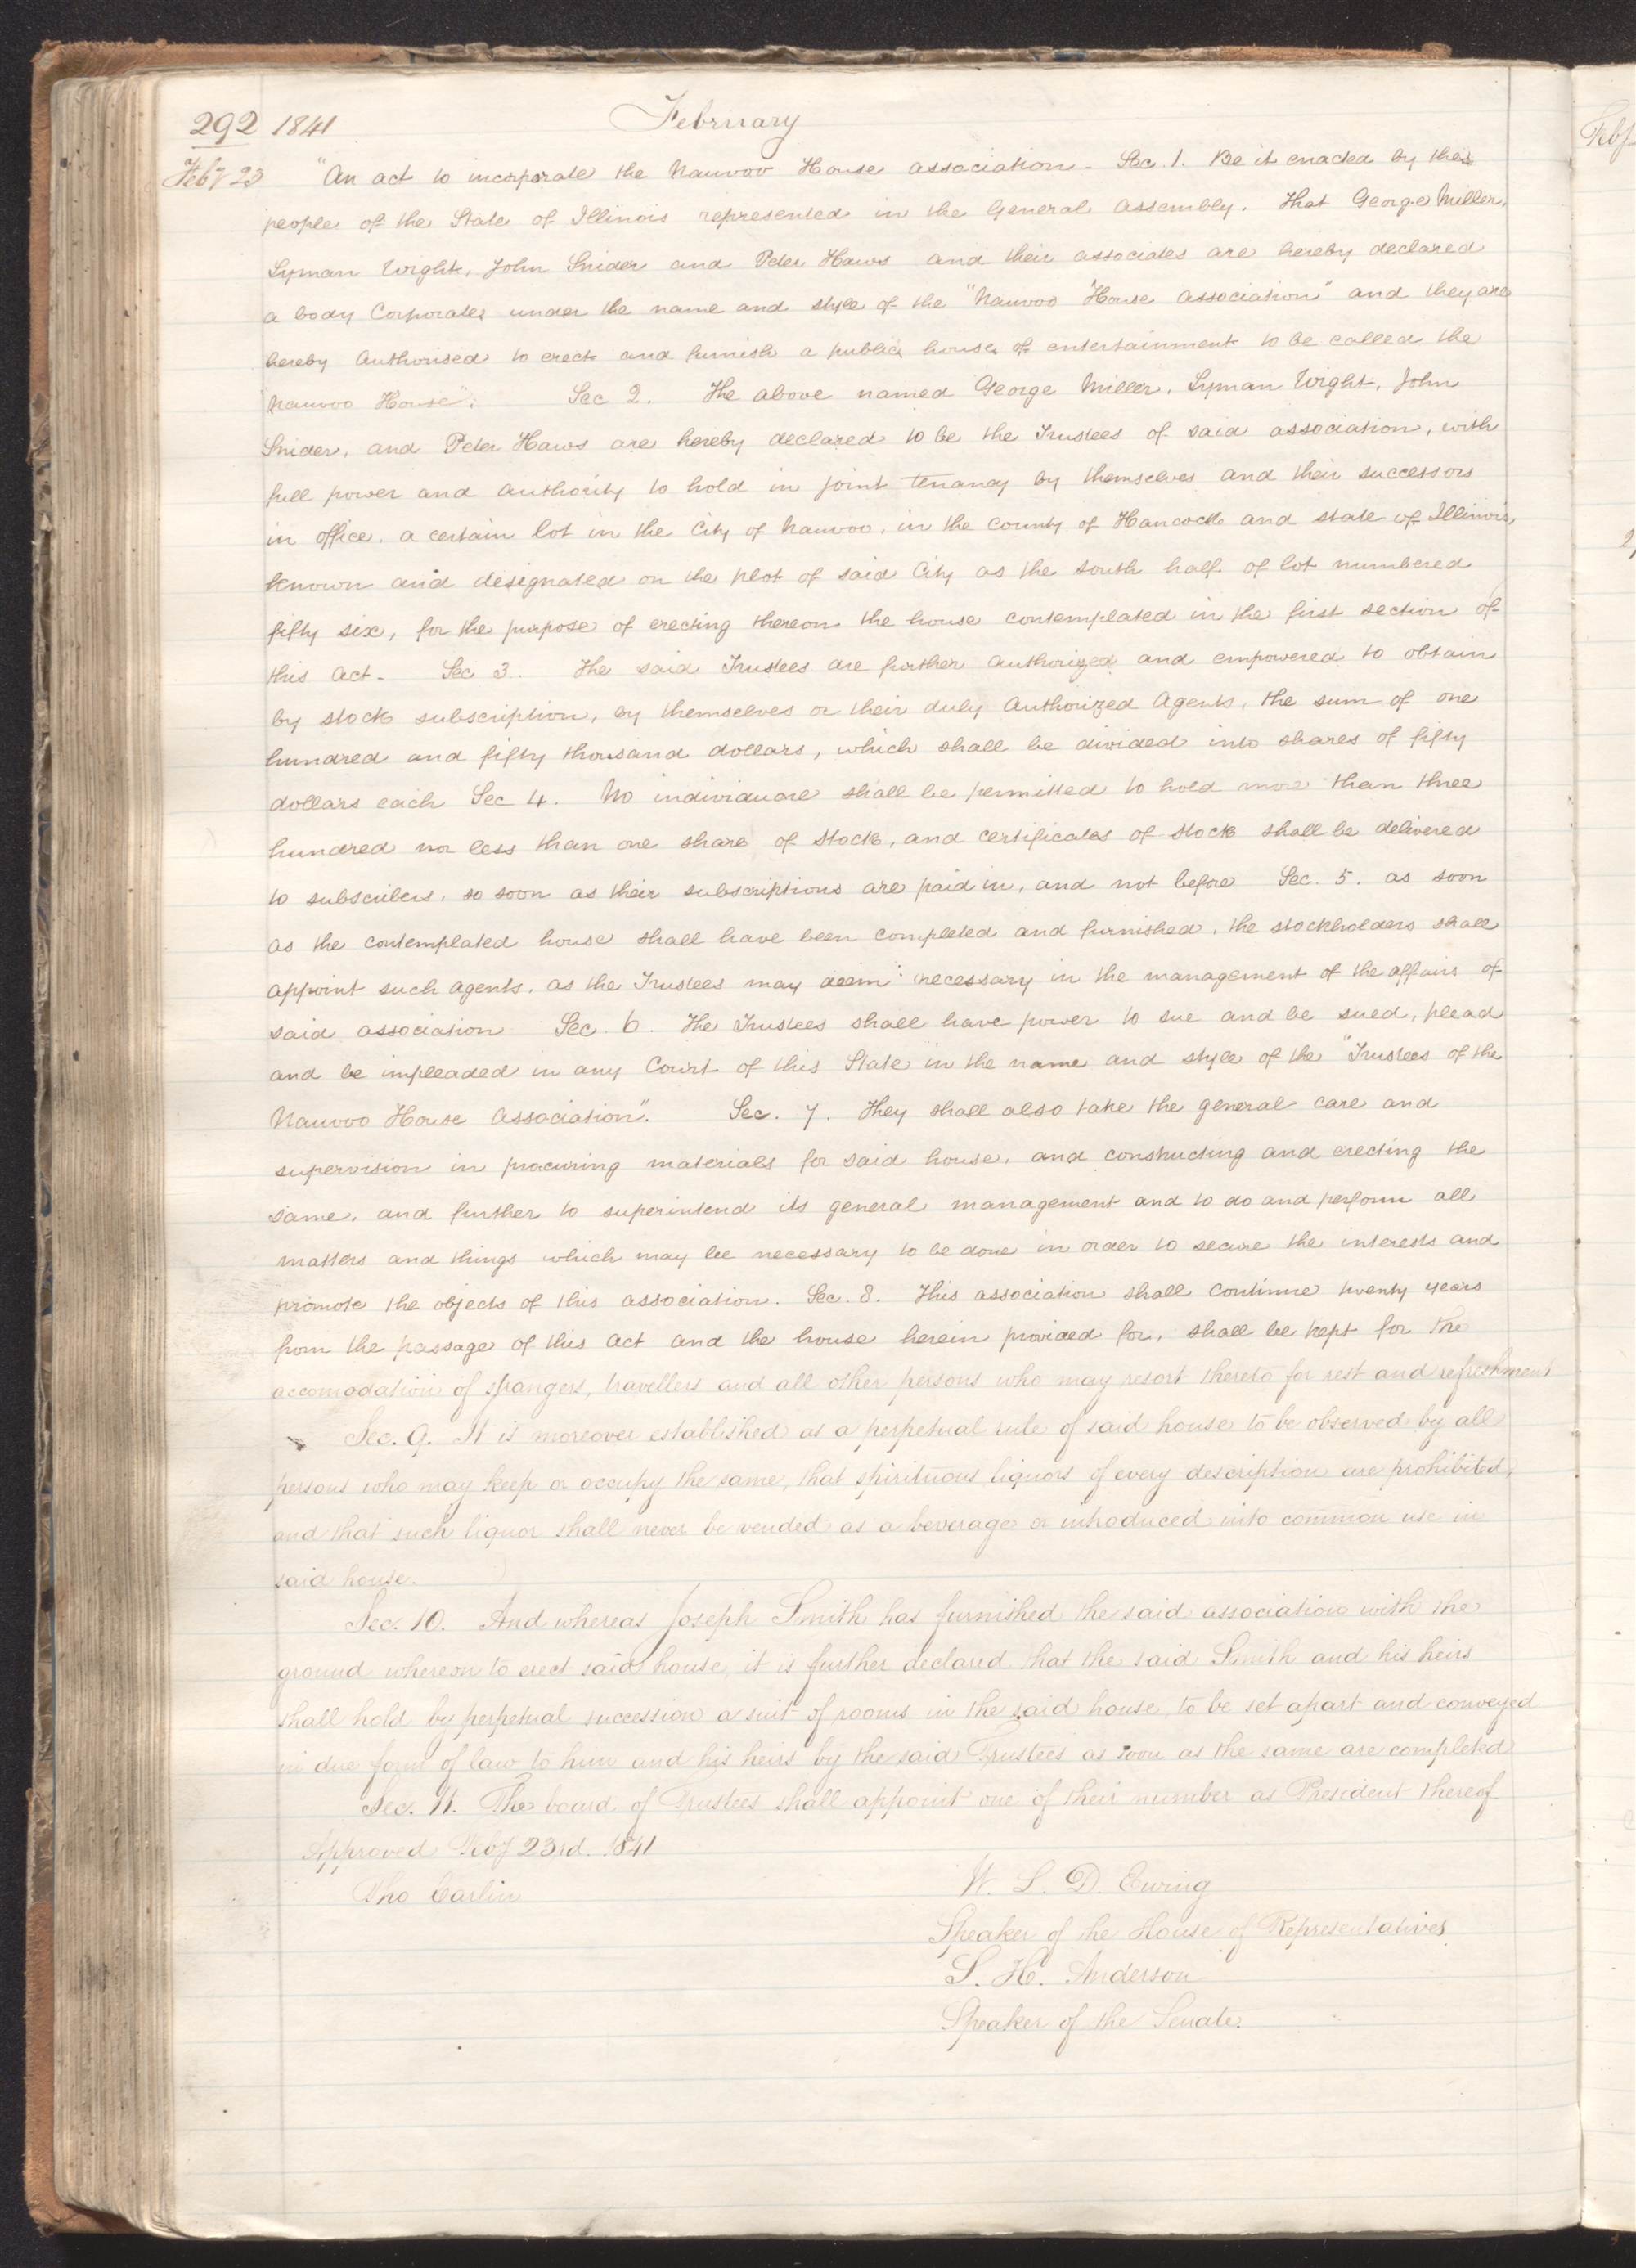 292 1841 February
Feby 23 "An act to incorporate the Nauvoo House association - Sec. 1. Be it enacted by the
people of the State of Illinois represented in the General Assembly. That George Miller,
Lyman Wight, John Snider and Peter Haws and their associates are hereby declared
a body Corporate, under the name and style of the "Nauvoo House Association" and they are
hereby Authorised to erect and furnish a public house of entertainment to be called the
"Nauvoo House". Sec 2. The above named George Miller, Lyman Wight, John
Snider, and Peter Haws are hereby declared to be the Trustees of said association, with
full power and authority to hold in joint tenancy by themselves and their successors
in office, a certain lot in the City of Nauvoo, in the county of Hancock and state of Illinois,
known and designated on the plot of said City as the south half of lot numbered
fifty six, for the purpose of erecting thereon the house contemplated in the first section of
this Act - Sec 3. The said Trustees are further authorized and empowered to obtain
by stock subscription, by themselves or their duly Authorized Agents, the sum of one
hundred and fifty thousand dollars, which shall be divided into shares of fifty
dollars each Sec 4. No individual shall be permitted to hold more than three
hundred nor less than one share of Stock, and certificates of stock shall be delivered
to subscribers, so soon as their subscriptions are paid in, and not before Sec. 5. as soon
as the contemplated house shall have been completed and furnished, the stockholders shall
appoint such agents, as the Trustees may deem necessary in the management of the affairs of
said association Sec. 6. The Trustees shall have power to sue and be sued, plead
and be impleaded in any Court of this State in the name and style of the "Trustees of the
Nauvoo House Association". Sec. 7. They shall also take the general care and
supervision in procuring materials for said house, and constructing and erecting the
same, and further to superintend its general management and to do and perform all
matters and things which may be necessary to be done in order to secure the interests and
promote the objects of this association. Sec. 8. This association shall continue twenty years
from the passage of this act and the house herein provided for, shall be kept for the
accomodation of strangers, travellers and all other persons who may resort thereto for rest and refreshment
Sec. 9. It is moreover established as a perpetual rule of said house to be observed by all
persons who may keep or occupy the same, that spirituous liquors of every description are prohibited,
and that such liquor shall never be vended as a beverage or introduced into common use in
said house.
Sec. 10. And whereas Joseph Smith has furnished the said association with the
ground whereon to erect said house, it is further declared that the said Smith and his heirs
shall hold by perpetual succession a suit of rooms in the said house, to be set apart and conveyed
in due form of law to him and his heirs by the said Trustees as soon as the same are completed
Sec. 11. The board of Trustees shall appoint one of their number as President thereof.
Approved Feby 23rd. 1841
Tho Carlin
W. L. D. Ewing
Speaker of the House of Representatives
S. H. Anderson
Speaker of the Senate.